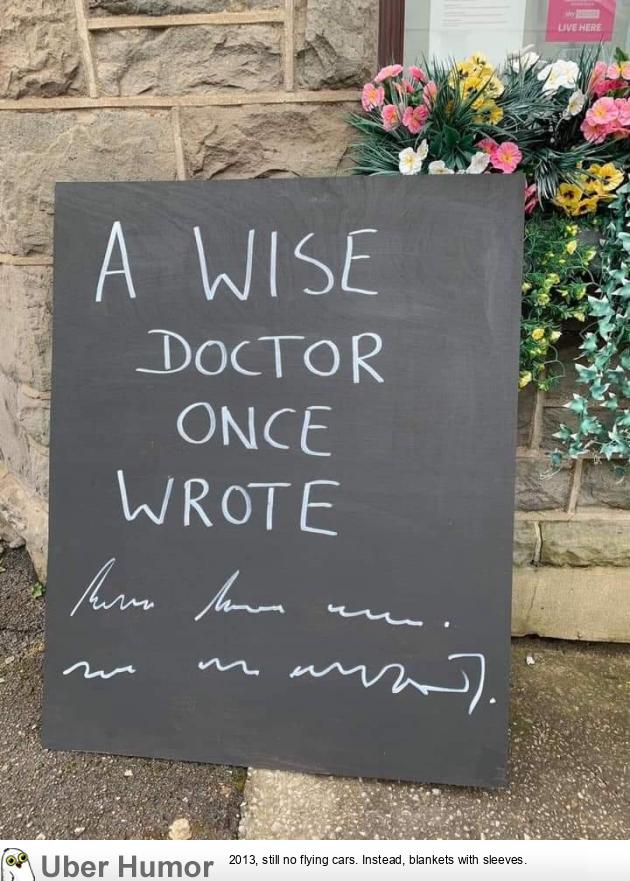 sky
LIVE HERE
A WISE
DOCTOR
ONCE
WROTE
Uber Humor
2013, still no flying cars. Instead, blankets with sleeves.